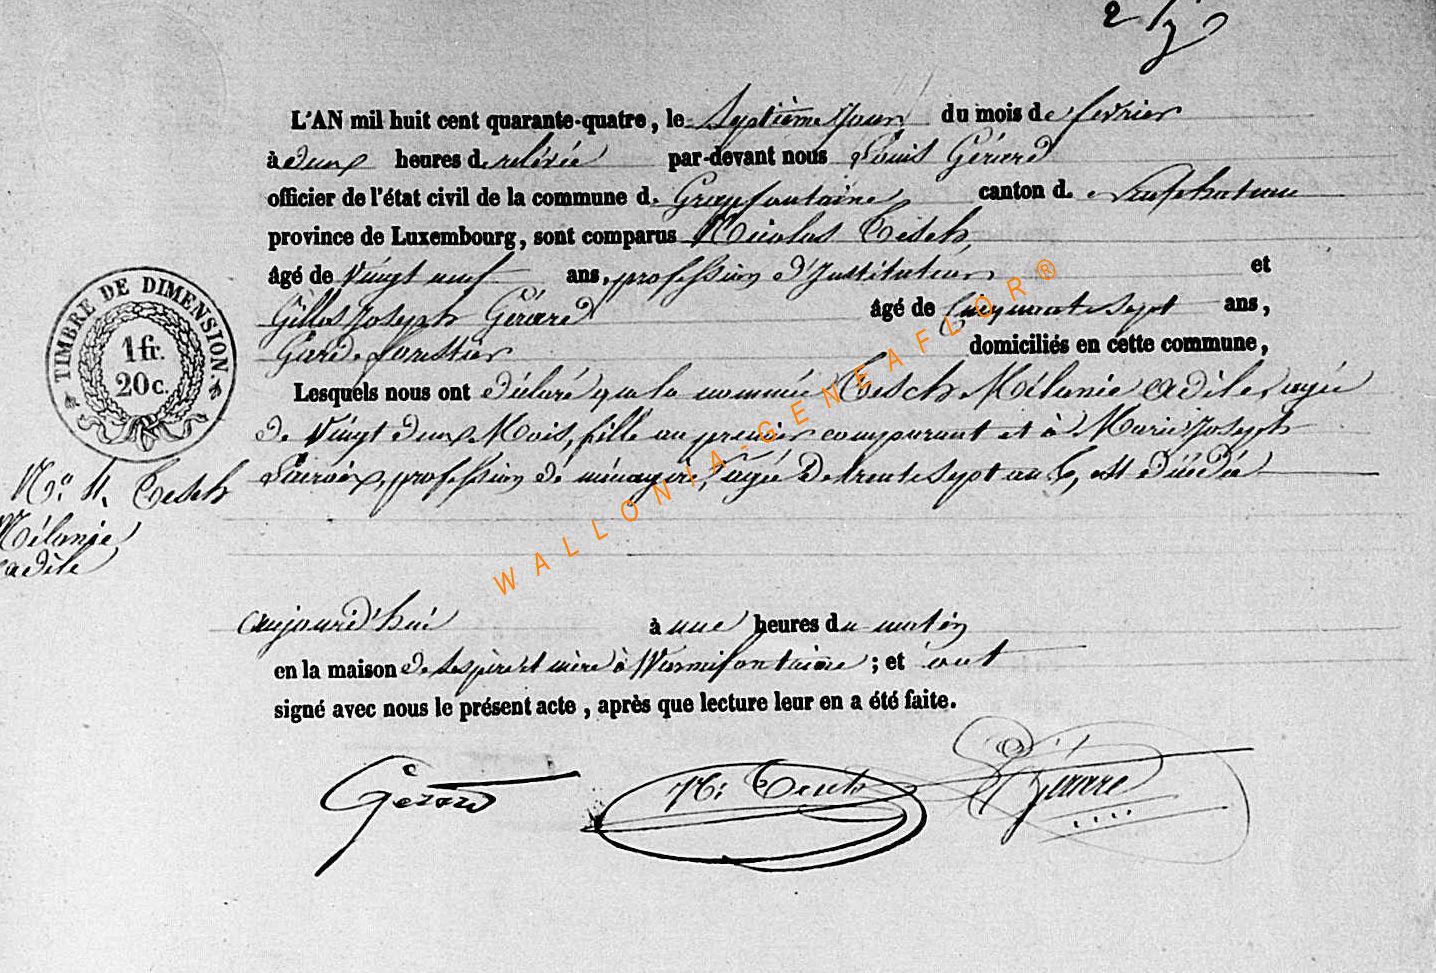 L'AN mil huit cent quarante-quatre, le Septième jour du mois de fevrier
à deux heures de relévée par-devant nous Louis Gérard
officier de l'état civil de la commune d. Grapfontaine canton d. e Neufchateau
province de Luxembourg, sont comparus Nicolas Tesch,
âgé de Vingt neuf ans, profession d'Instituteur et
Gilles Joseph Gérard âgé de Cinquante sept ans,
Garde forestier domiciliés en cette commune,
Lesquels nous ont déclaré que la nommée Tesch Mélanie adèle, agée
de Vingt deux Mois, fille au premier comparant et à Marie Joseph
profession de ménagère, agée De trente sept ans, est décédée
N.° 4. Tesch
Mélanie
adèle
aujourd'hui à une heures du matin
en la maison de ses père et mère à Warmifontaine ; et ont
signé avec nous le présent acte, après que lecture leur en a été faite.
Gérard N: Tesch Gérard
TIMBRE DE DIMENSION.
1 fr.
20 c.
WALLONIA-GENEAFLOR®